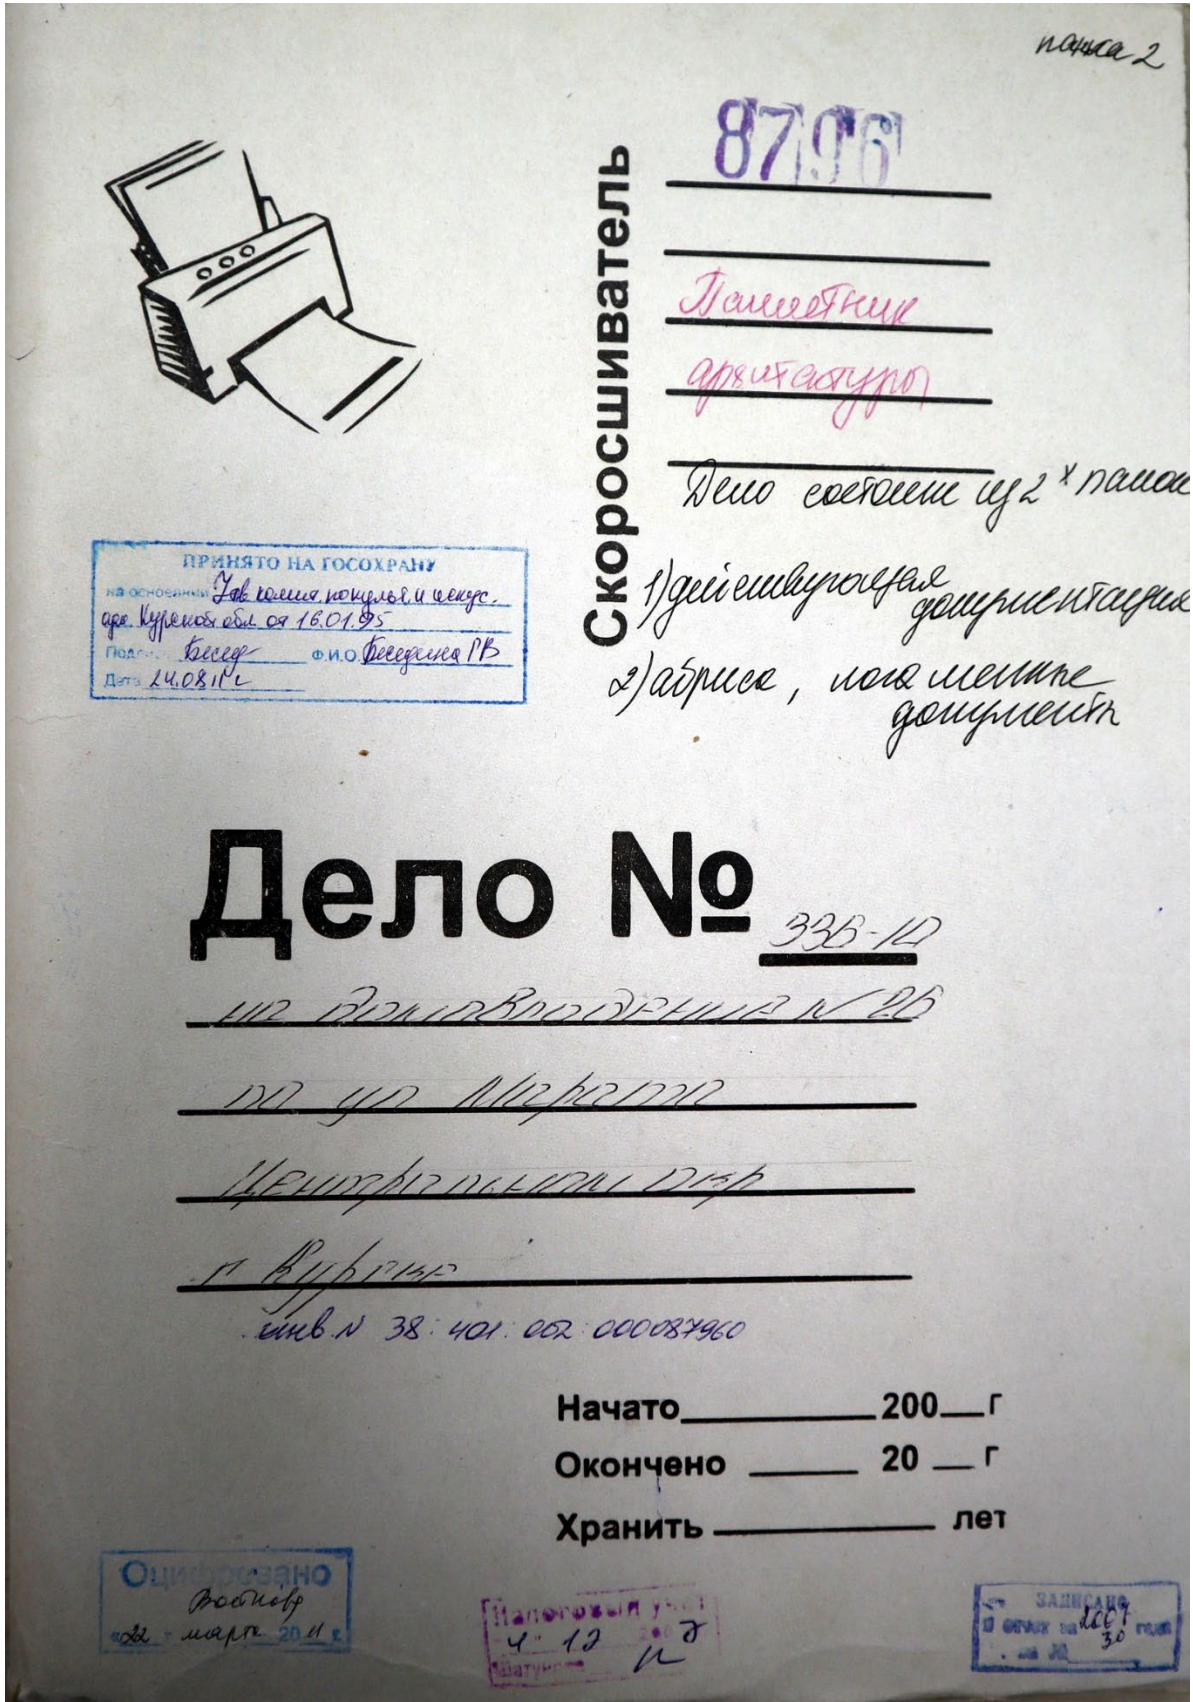 папка 2
8796
Скоросшиватель
Памятник
архитектуры
Дело состоит из 2х папок
1) действующая
документация
2) абриса, погашенные
документы
ПРИНЯТО НА ГОСОХРАНУ
на основании
Курской обл от 16.01.95
Ф.И.О. Беседина ГВ
Дата 24.08.11г
Дело №
336-10
на домовладение N 2Б
по ул Марата
Центральный окр
г Курске
инв. N 38:401:002:000087960
Начато 200 г
Окончено 20 г
Хранить лет
Оцифровано
«22» марта 2011 г.
Налоговый учет
4 12 2007
ЗАПИСАНО
в отчет за 2007 года
за № 30